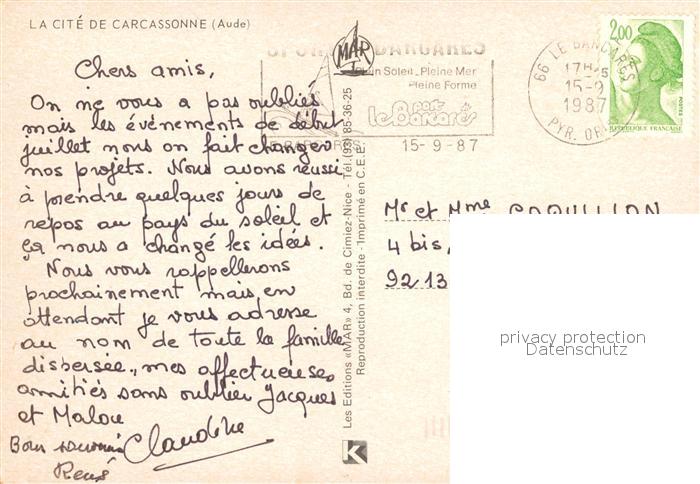 LA CITÉ DE CARCASSONNE (Aude)
Chers amis,
On ne vous a pas oubliés
mais les événements de début
juillet nous on fait changer
nos projets. Nous avons réussi
à prendre quelques jours de
repos au pays du soleil et
ça nous a changé les idées.
Nous vous rappellerons
prochainement mais en
attendant je vous adresse
au nom de toute la famille
dispersée, mes affectueuses
amitiés sans oublier Jacques
et Malou
Claudine
Bons souvenirs
René
MAR
BARCARES
Soleil _ Pleine Mer
Pleine Forme
port
le Barcarès
15-9-87
66 LE BARCARES
17H
15-9
1987
PYR. OR
2,00
POSTES
REPUBLIQUE FRANÇAISE
Les Editions «MAR» 4, Bd. de Cimiez-Nice - Tél. (93) 85-36-25
Reproduction interdite - Imprimé en C.E.E.
K
Mr et Mme
4 bis,
92 13
privacy protection
Datenschutz